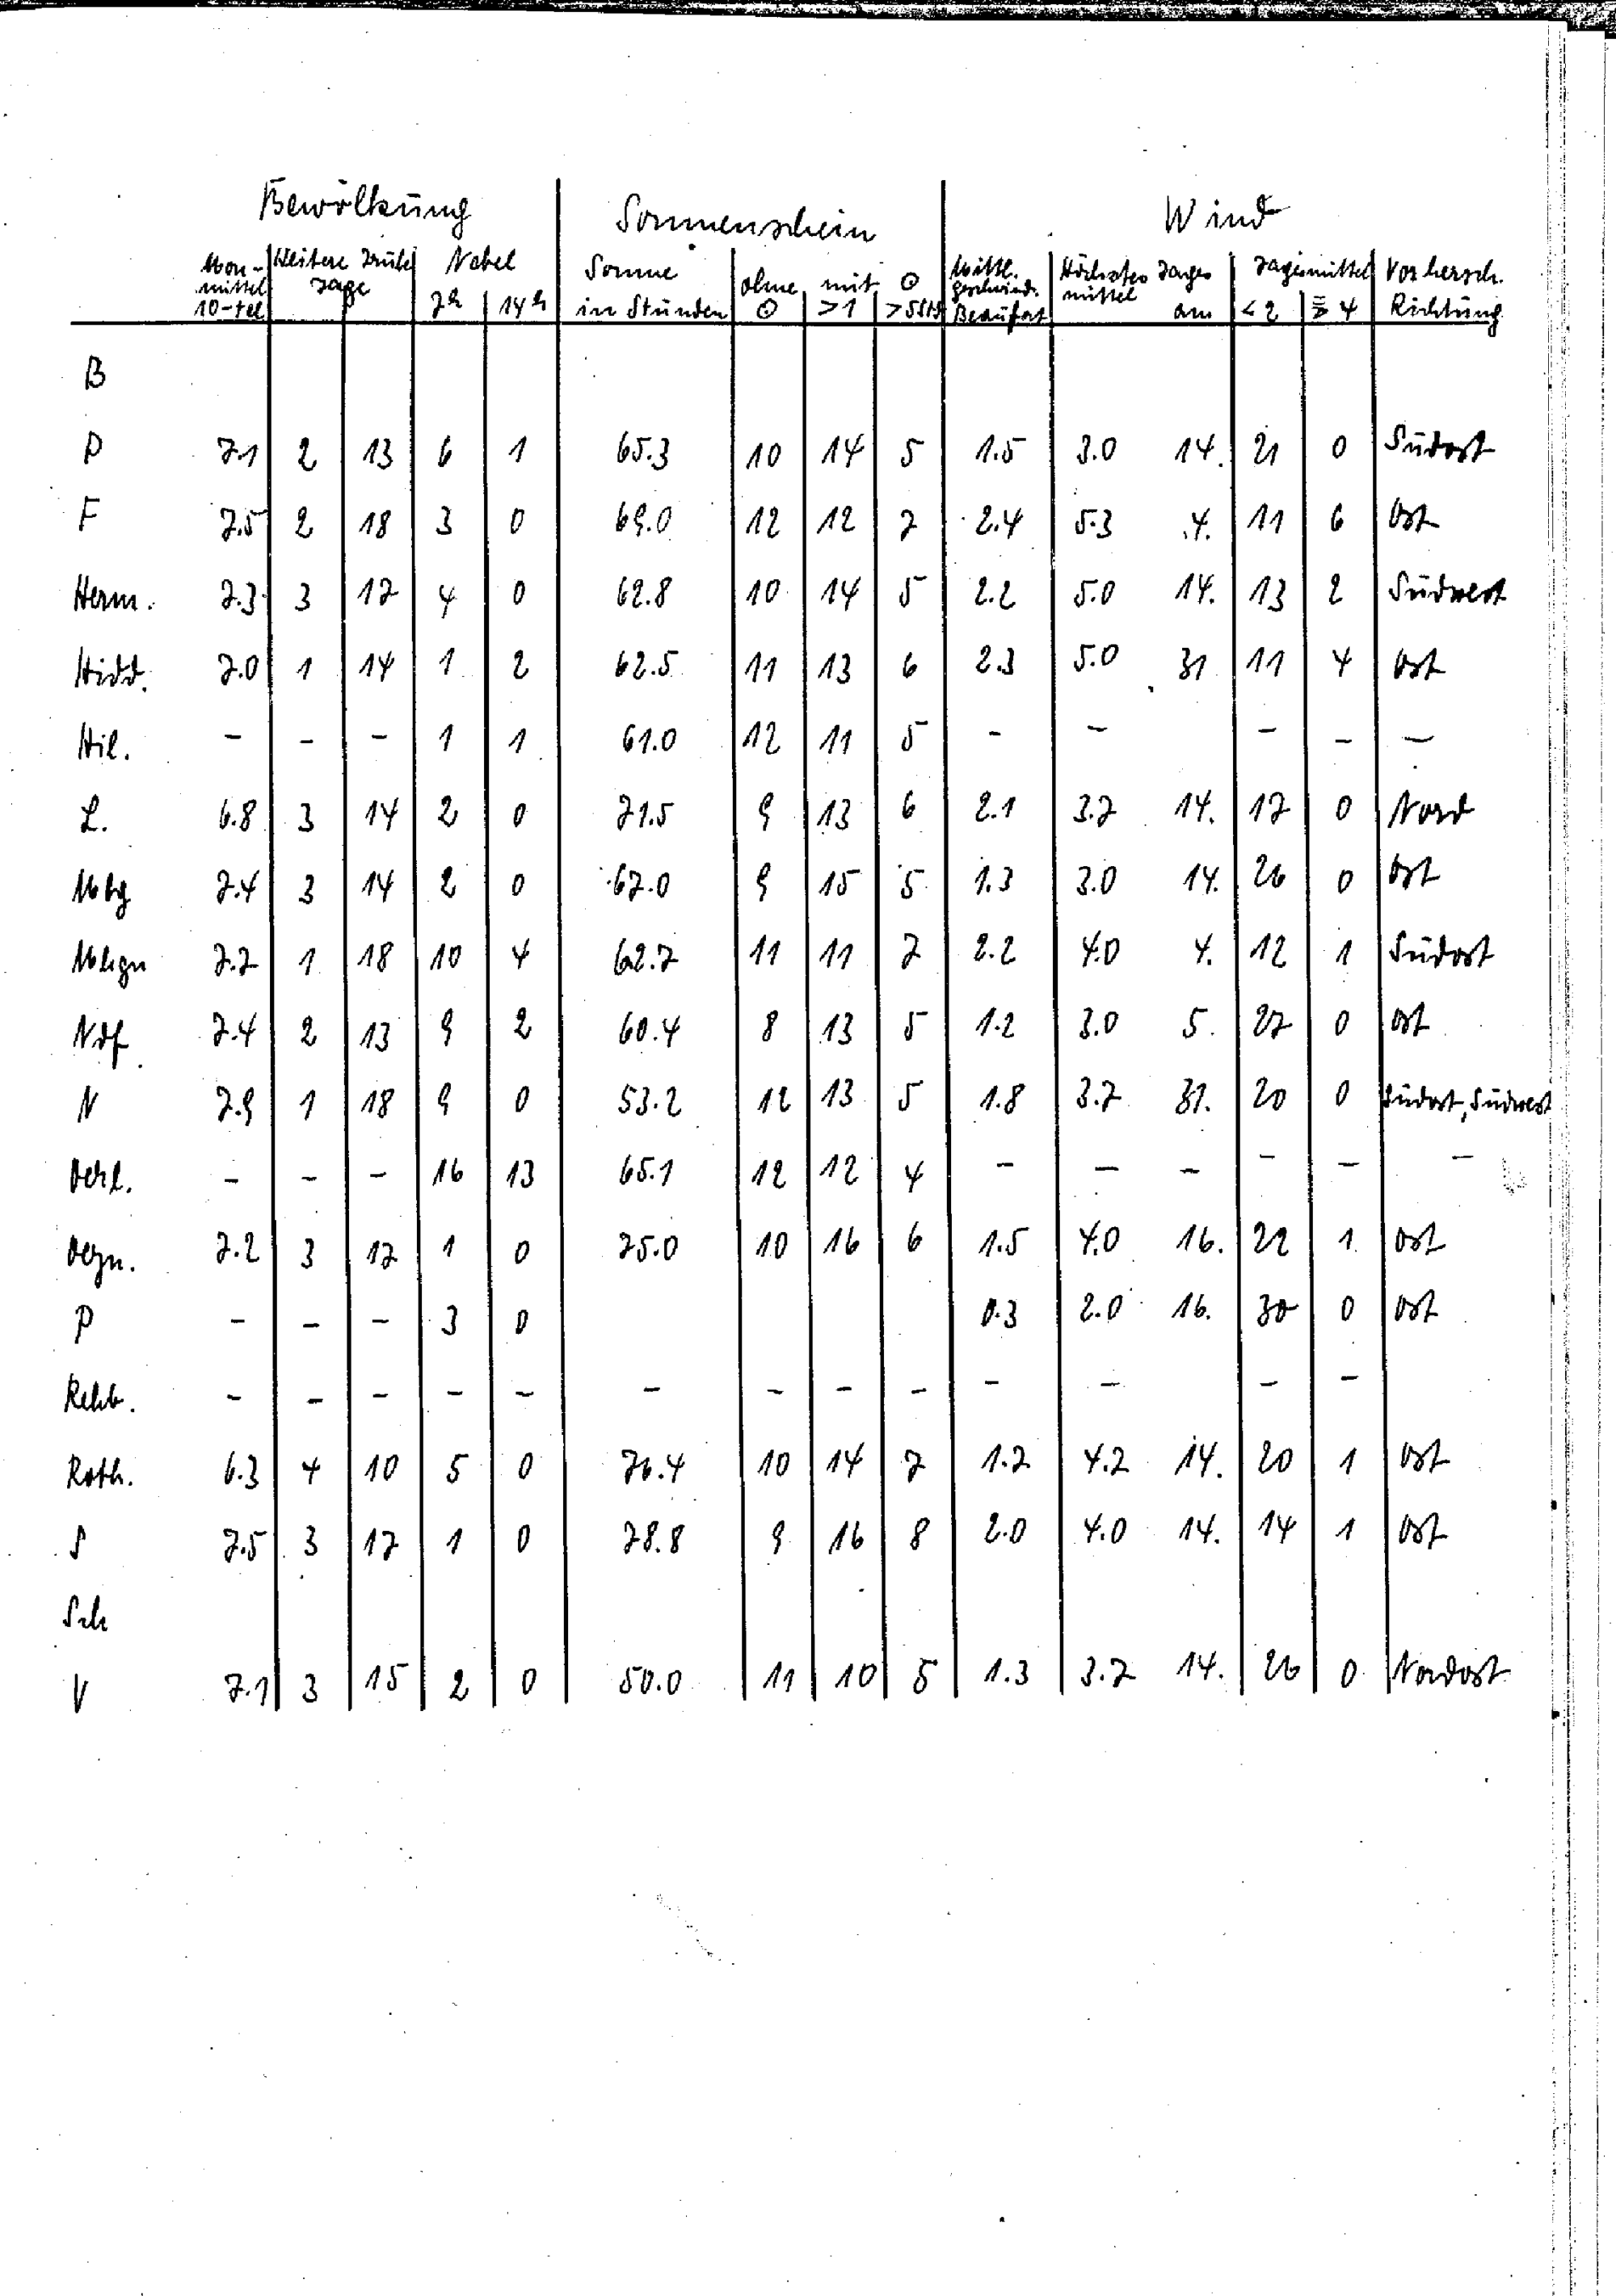 Bewölkung Sonnenschein Wind
Mon- Heitere Trübe Nebel Sonne ohne mit ⊙ Mittl. Höchstes Tages Tagesmittel Vorhersch.
mittel Tage geschwind. mittel
10-tel 7h 14h in Stunden ⊙ >1 >5Std Beaufort am <2 ≧4 Richtung
B
D 7.1 2 13 6 1 65.3 10 14 5 1.5 3.0 14. 21 0 Südost
F 7.5 2 18 3 0 69.0 12 12 7 2.4 5.3 4. 11 6 Ost
Herm. 7.3 3 17 4 0 62.8 10 14 5 2.2 5.0 14. 13 2 Südwest
Hidd. 7.0 1 14 1 2 62.5 11 13 6 2.3 5.0 31 11 4 Ost
Hil. - - - 1 1 61.0 12 11 5 - - - - -
L. 6.8 3 14 2 0 71.5 9 13 6 2.1 3.7 14. 17 0 Nord
Mbg 7.4 3 14 2 0 67.0 9 15 5 1.3 3.0 14. 26 0 Ost
7.7 1 18 10 4 62.7 11 11 7 2.2 4.0 4. 12 1 Südost
Ndf. 7.4 2 13 9 2 60.4 8 13 5 1.2 3.0 5. 27 0 Ost
N 7.9 1 18 9 0 53.2 12 13 5 1.8 3.7 31. 20 0 Südost, Südwest
Oerl. - - - 16 13 65.1 12 12 4 - - - - - -
Oegn. 7.2 3 17 1 0 75.0 10 16 6 1.5 4.0 16. 22 1 Ost
P - - - 3 0 0.3 2.0 16. 30 0 Ost
Rehb. - - - - - - - - - - - - -
Roth. 6.3 4 10 5 0 76.4 10 14 7 1.7 4.2 14. 20 1 Ost
S 7.5 3 17 1 0 78.8 9 16 8 2.0 4.0 14. 14 1 Ost
Sch
V 7.1 3 15 2 0 50.0 11 10 5 1.3 3.7 14. 26 0 Nordost